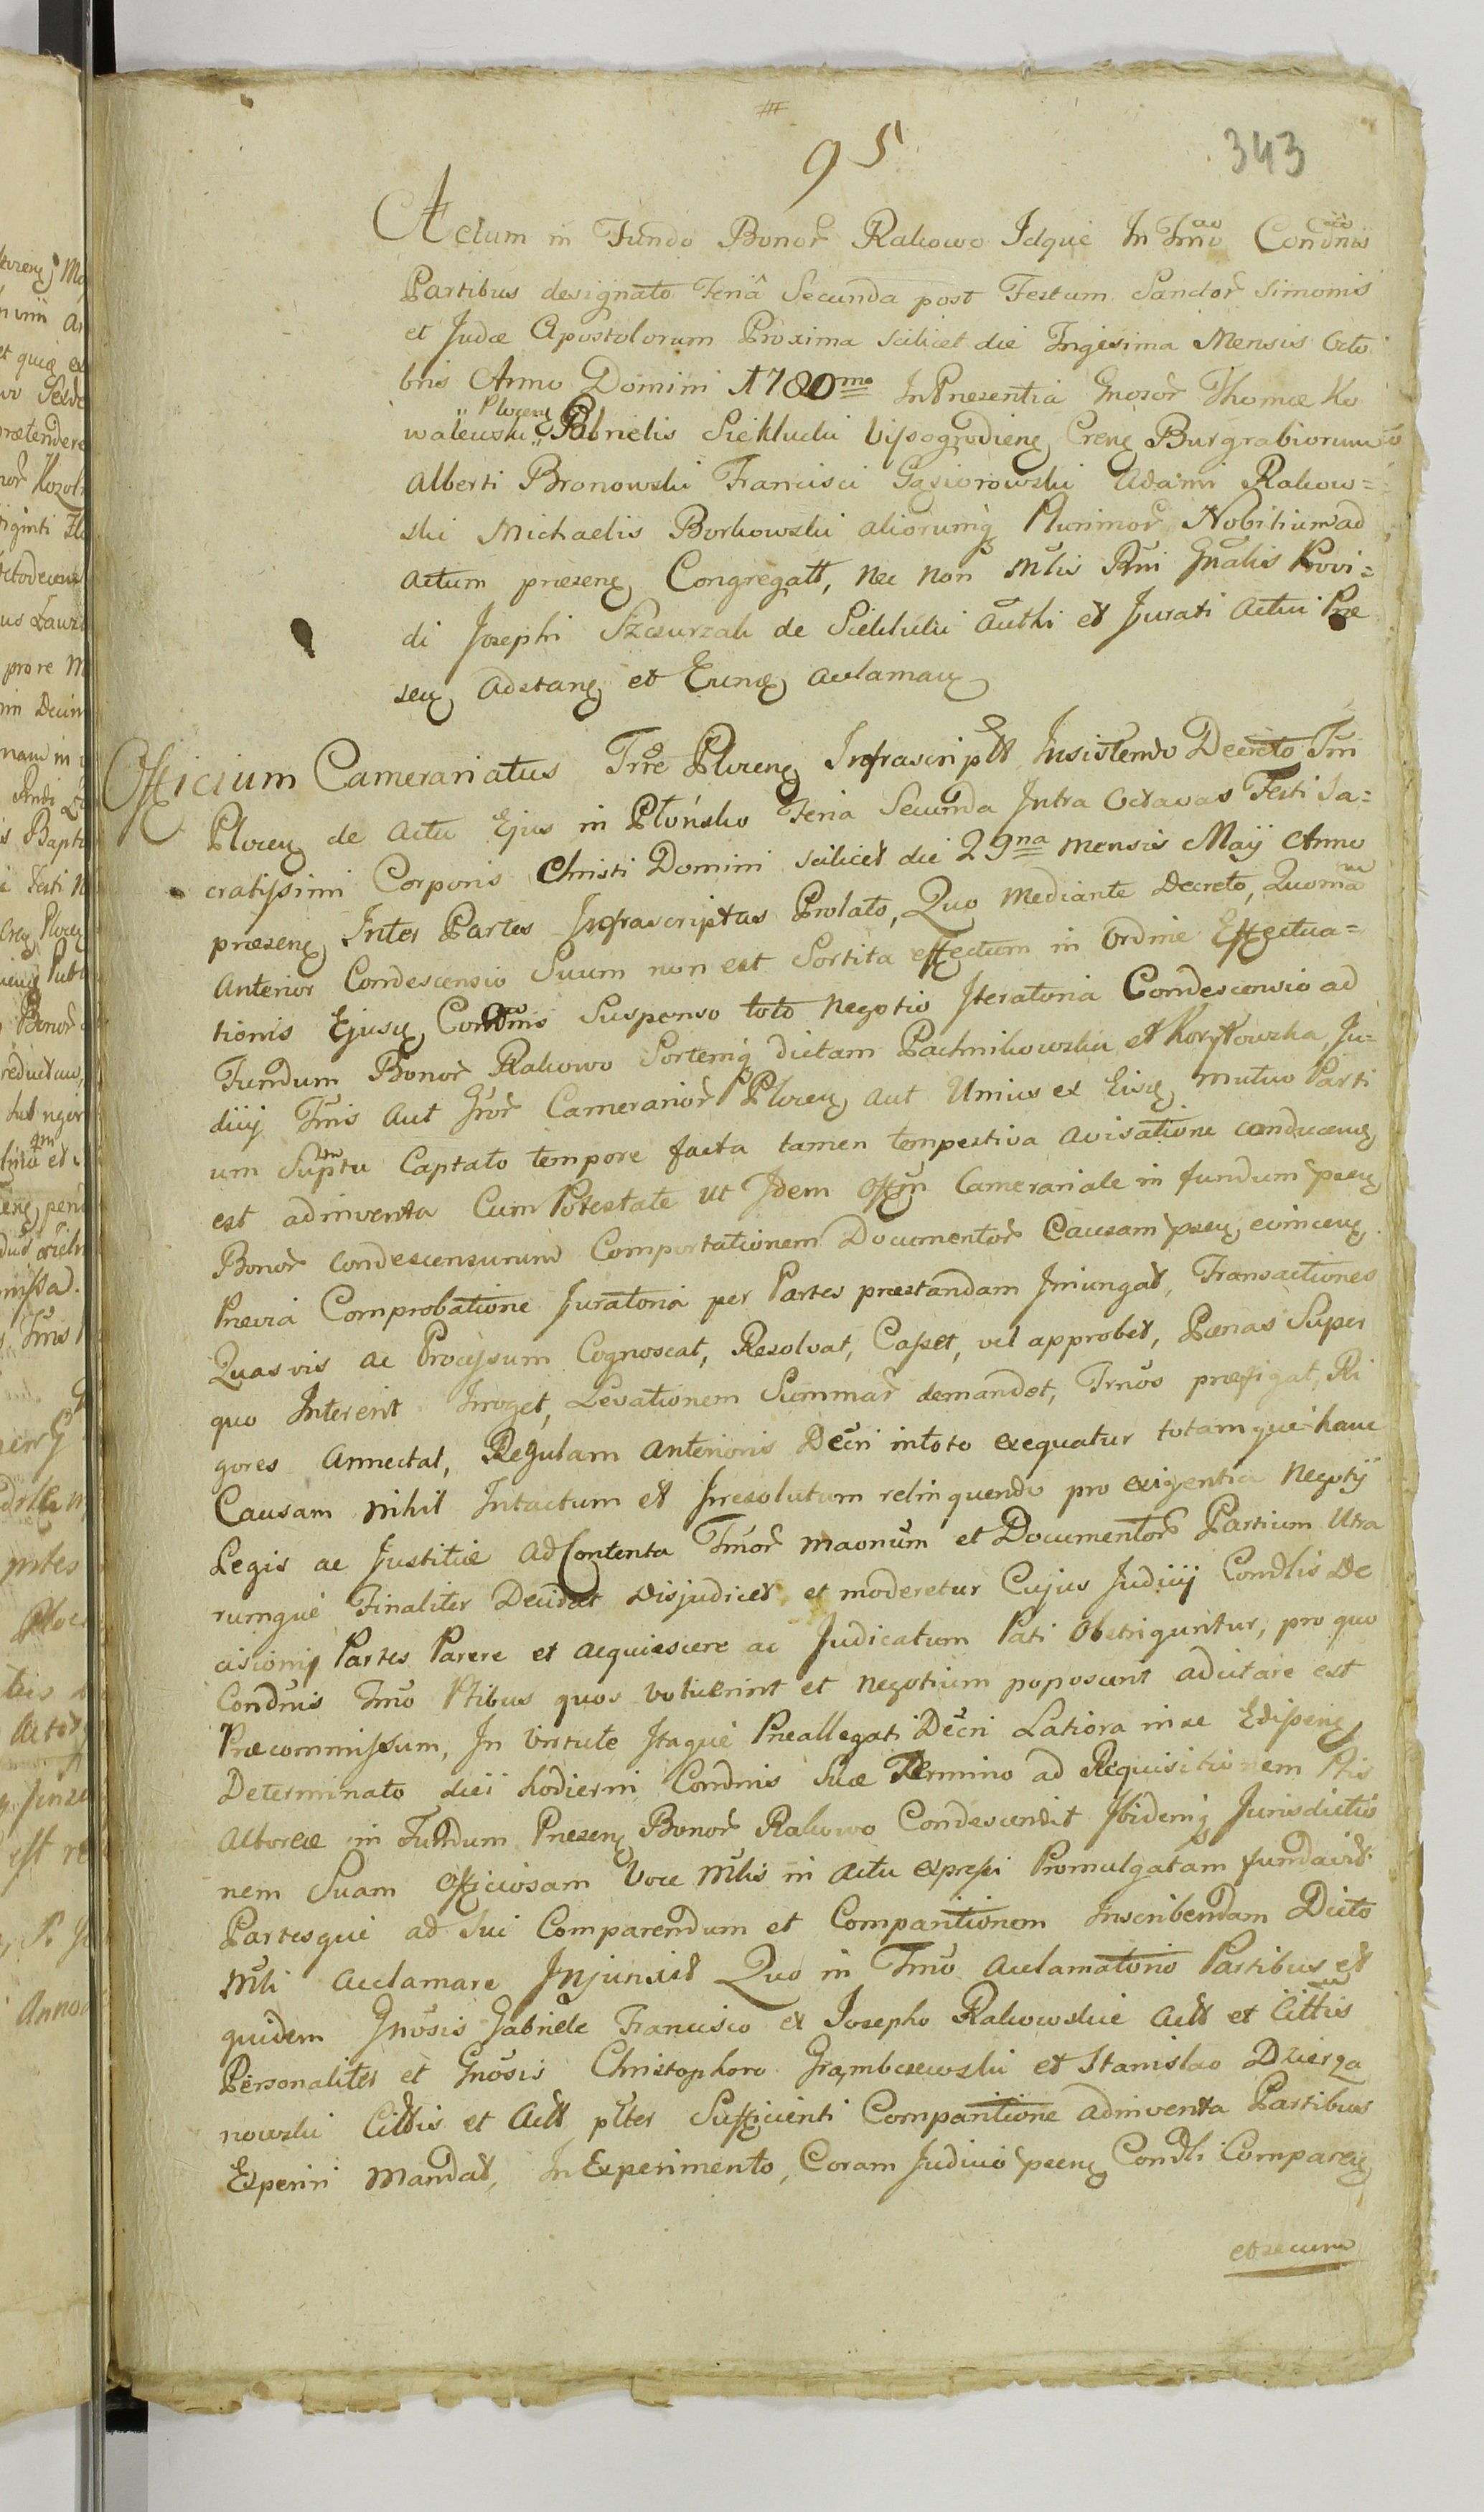 95
343
Actum in Fundo Bonor Rakowo Idque In Tmno Condnis
Partibus designato Feria Secunda post Festum Sanctor Simonis
et Judæ Apostolorum Proxima scilicet die Trigesima Mensis Octo
bris Anno Domini 1780mo In Præsentia Gnosor Thomæ Ko
walewski Plocen Gabrielis Sieklucki Vissogrodien Cren Burgrabiorum
Alberti Bronowski Francisci Gąsiorowski Adami Rakow=
ski Michaelis Borkowski aliorumq Plurimor Nobilium ad
actum præsen Congregatt, nec non Mlis Rni Gnalis Provi=
di Josephi Szczurzak de Sieklulii Authi et Jurati actui Præ
sen adstan et Eung aclaman
Officium Camerariatus Trræ Plocen Infrascriptt Insistendo Decreto Tmi
Plocen de actu Ejus in Płońsko Feria Secunda Intra Octavas Festi Sa=
cratissimi Corporis Christi Domini scilicet die 29na mensis Maij Anno
præsen Inter Partes Infrascriptas Prolato, Quo mediante Decreto, Quoma
anterior Condescensio Suum non est Sortita effectum in Ordine Effectua=
tionis Ejusq Condnis Suspenso toto negotio Iteratoria Condescensio ad
Fundum Bonor Rakowo Sortemq dictam Pachnikowska et Korytowska, Ju=
dicij Tmis aut Gnor Camerarior Plocen aut Unius ex Eisq mutuo Parti
um Suptu Captato tempore facta tamen tempestiva avisatione conducen
est adinventa Cum Potestate ut Idem Offm Camerariale in fundum psen
Bonor condescensurum Comportationem Documentor Causam psen evincen
Prævia Comprobatione Juratoria per Partes præstandam Iniungat, Transactiones
Quasvis ac Processum Cognoscat, Resolvat, Casset, vel approbet, Pænas Super
quo Interent Irroget, Levationem Summar demandet, Tmos præfigat, Ri
gores annectat, Regulam anterioris Decri intoto exequatur totamque hanc
Causam nihil Intactum et Irresolutum relinquendo pro exigentia negotij
Legis ac Justitiæ ad Contenta Tmor maonum et Documentor Partium Utra
rumque Finaliter Decidat disjudicet et moderetur Cujus Judicij Condlis De
cisioniq Partes Parere et acquiescere ac Judicatum Pati Obstriguntur, pro quo
Condnis Tmo Ptibus quos voluerint et negotium poposcent adcitare est
Præcommissum, In Virtute Itaque Præallegati Decri Latiora in se Edisseren
Determinato diei hodierni Condnis Suæ Termino ad Requisitionem Ptis
Actoreæ in Fundum Præsen Bonor Rakowo Condescendit Ibidemq Jurisdictio
nem Suam Officiosam Voce Mlis in actu expressi Promulgatam fundavit
Partesque ad Sui Comparendum et Comparitionem Inscribendam Dicto
Mli acclamare Injunxit Quo in Tmo aclamatorio Partibus et
quidem Gnosis Gabriele Francisco et Josepho Rakowskie actt et Cittis
Personaliter et Gnosis Christophoro Grąmbczewski et Stanislao Dzierża
nowski Cittis et actt plter Sufficienti Comparitione adinventa Partibus
Experiri Mandat, In Experimento, Coram Judicio psen Condli Comparen
et secum